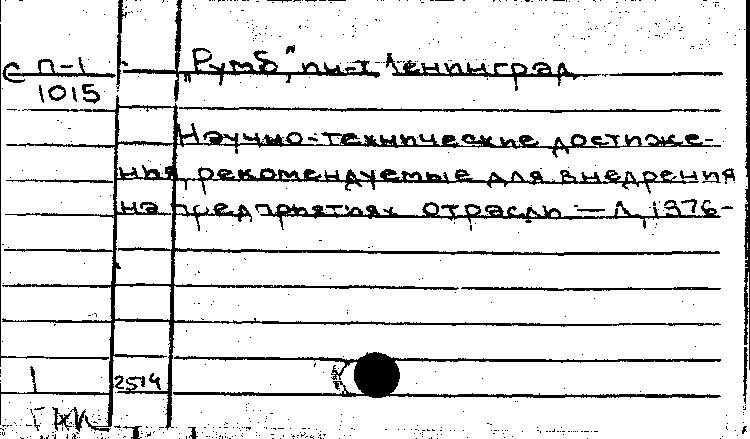 С П-1
1015
„Румб", ин-т, Ленинград
Научно-технические достиже-
ния, рекомендуемые для внедрения
на предприятиях отрасли. — Л, 1976-
1
2514